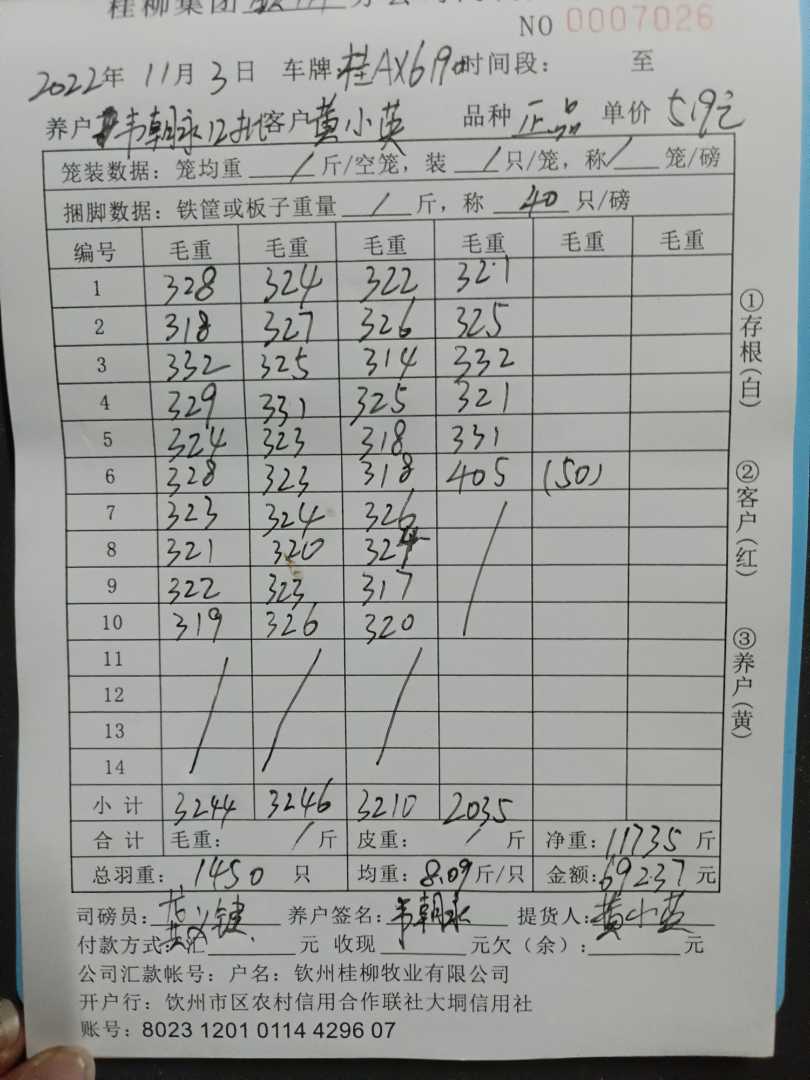 桂柳集团
NO 0007026
2022年 11月 3日 车牌:桂AX619 时间段: 至
养户 韦朝永12批 客户 黄小英 品种 正品 单价 5.9元
笼装数据: 笼均重 / 斤/空笼, 装 / 只/笼, 称 / 笼/磅
捆脚数据: 铁筐或板子重量 / 斤, 称 40 只/磅
编号 毛重 毛重 毛重 毛重 毛重 毛重
1 328 324 322 321
2 318 327 326 325
3 332 325 314 332
4 329 331 325 321
5 324 323 318 331
6 328 323 318 405 (50)
7 323 324 326
8 321 320 324
9 322 323 317
10 319 326 320
11
12
13
14
小计 3244 3246 3210 2035
合计 毛重: / 斤 皮重: / 斤 净重: 11735 斤
总羽重: 1450 只 均重: 8.09 斤/只 金额: 69237 元
司磅员: 养户签名: 韦朝永 提货人: 黄小英
付款方式: 汇 元 收现 元欠(余): 元
公司汇款帐号: 户名: 钦州桂柳牧业有限公司
开户行: 钦州市区农村信用合作联社大垌信用社
账号: 8023 1201 0114 4296 07
①存根(白)
②客户(红)
③养户(黄)